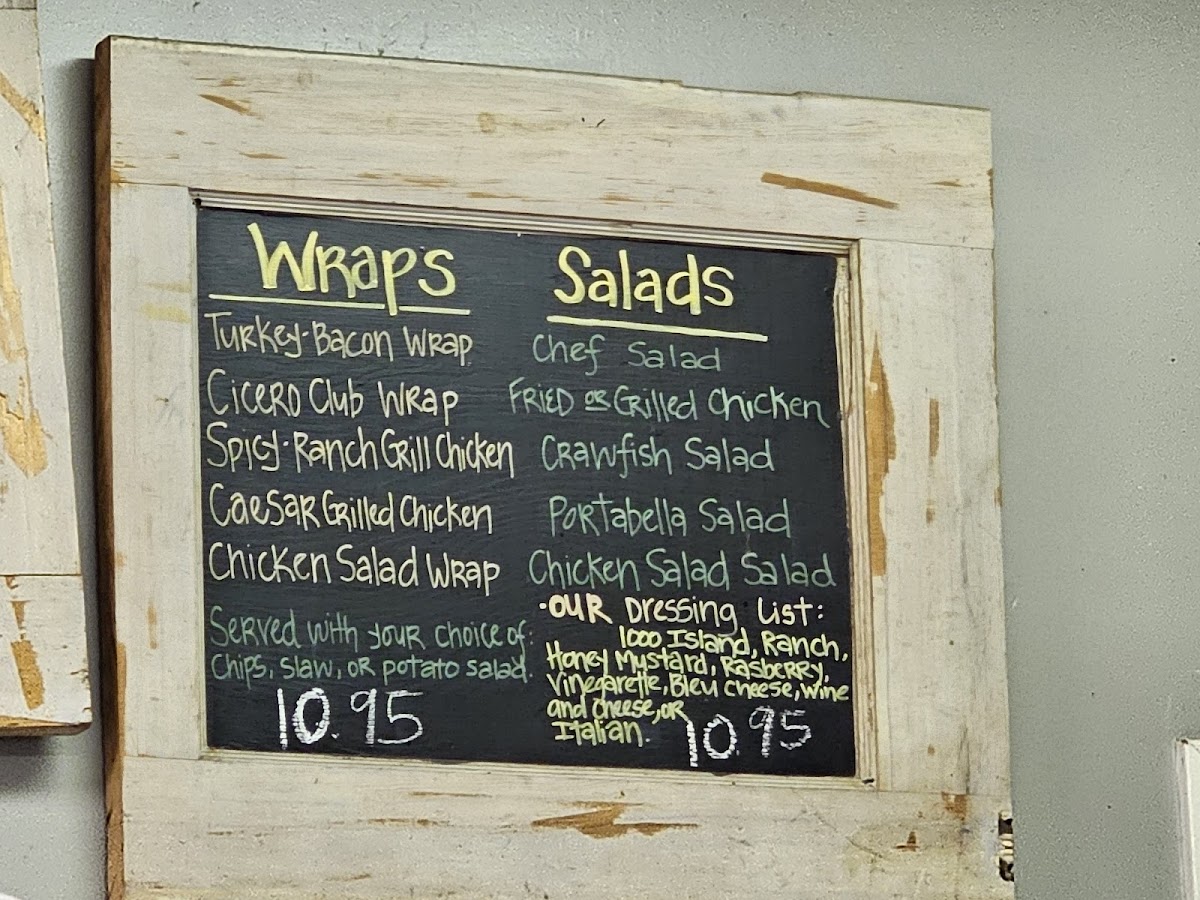 Wraps
Turkey-Bacon Wrap
Cicero Club Wrap
Spicy-Ranch Grill Chicken
Caesar Grilled Chicken
Chicken Salad Wrap
Served with your choice of:
Chips, slaw, or potato salad.
10.95
Salads
Chef Salad
Fried or Grilled Chicken
Crawfish Salad
Portabella Salad
Chicken Salad Salad
·Our Dressing List:
1000 Island, Ranch,
Honey Mustard, Rasberry,
Vinegarette, Bleu Cheese, Wine
and Cheese, or
Italian.
10.95